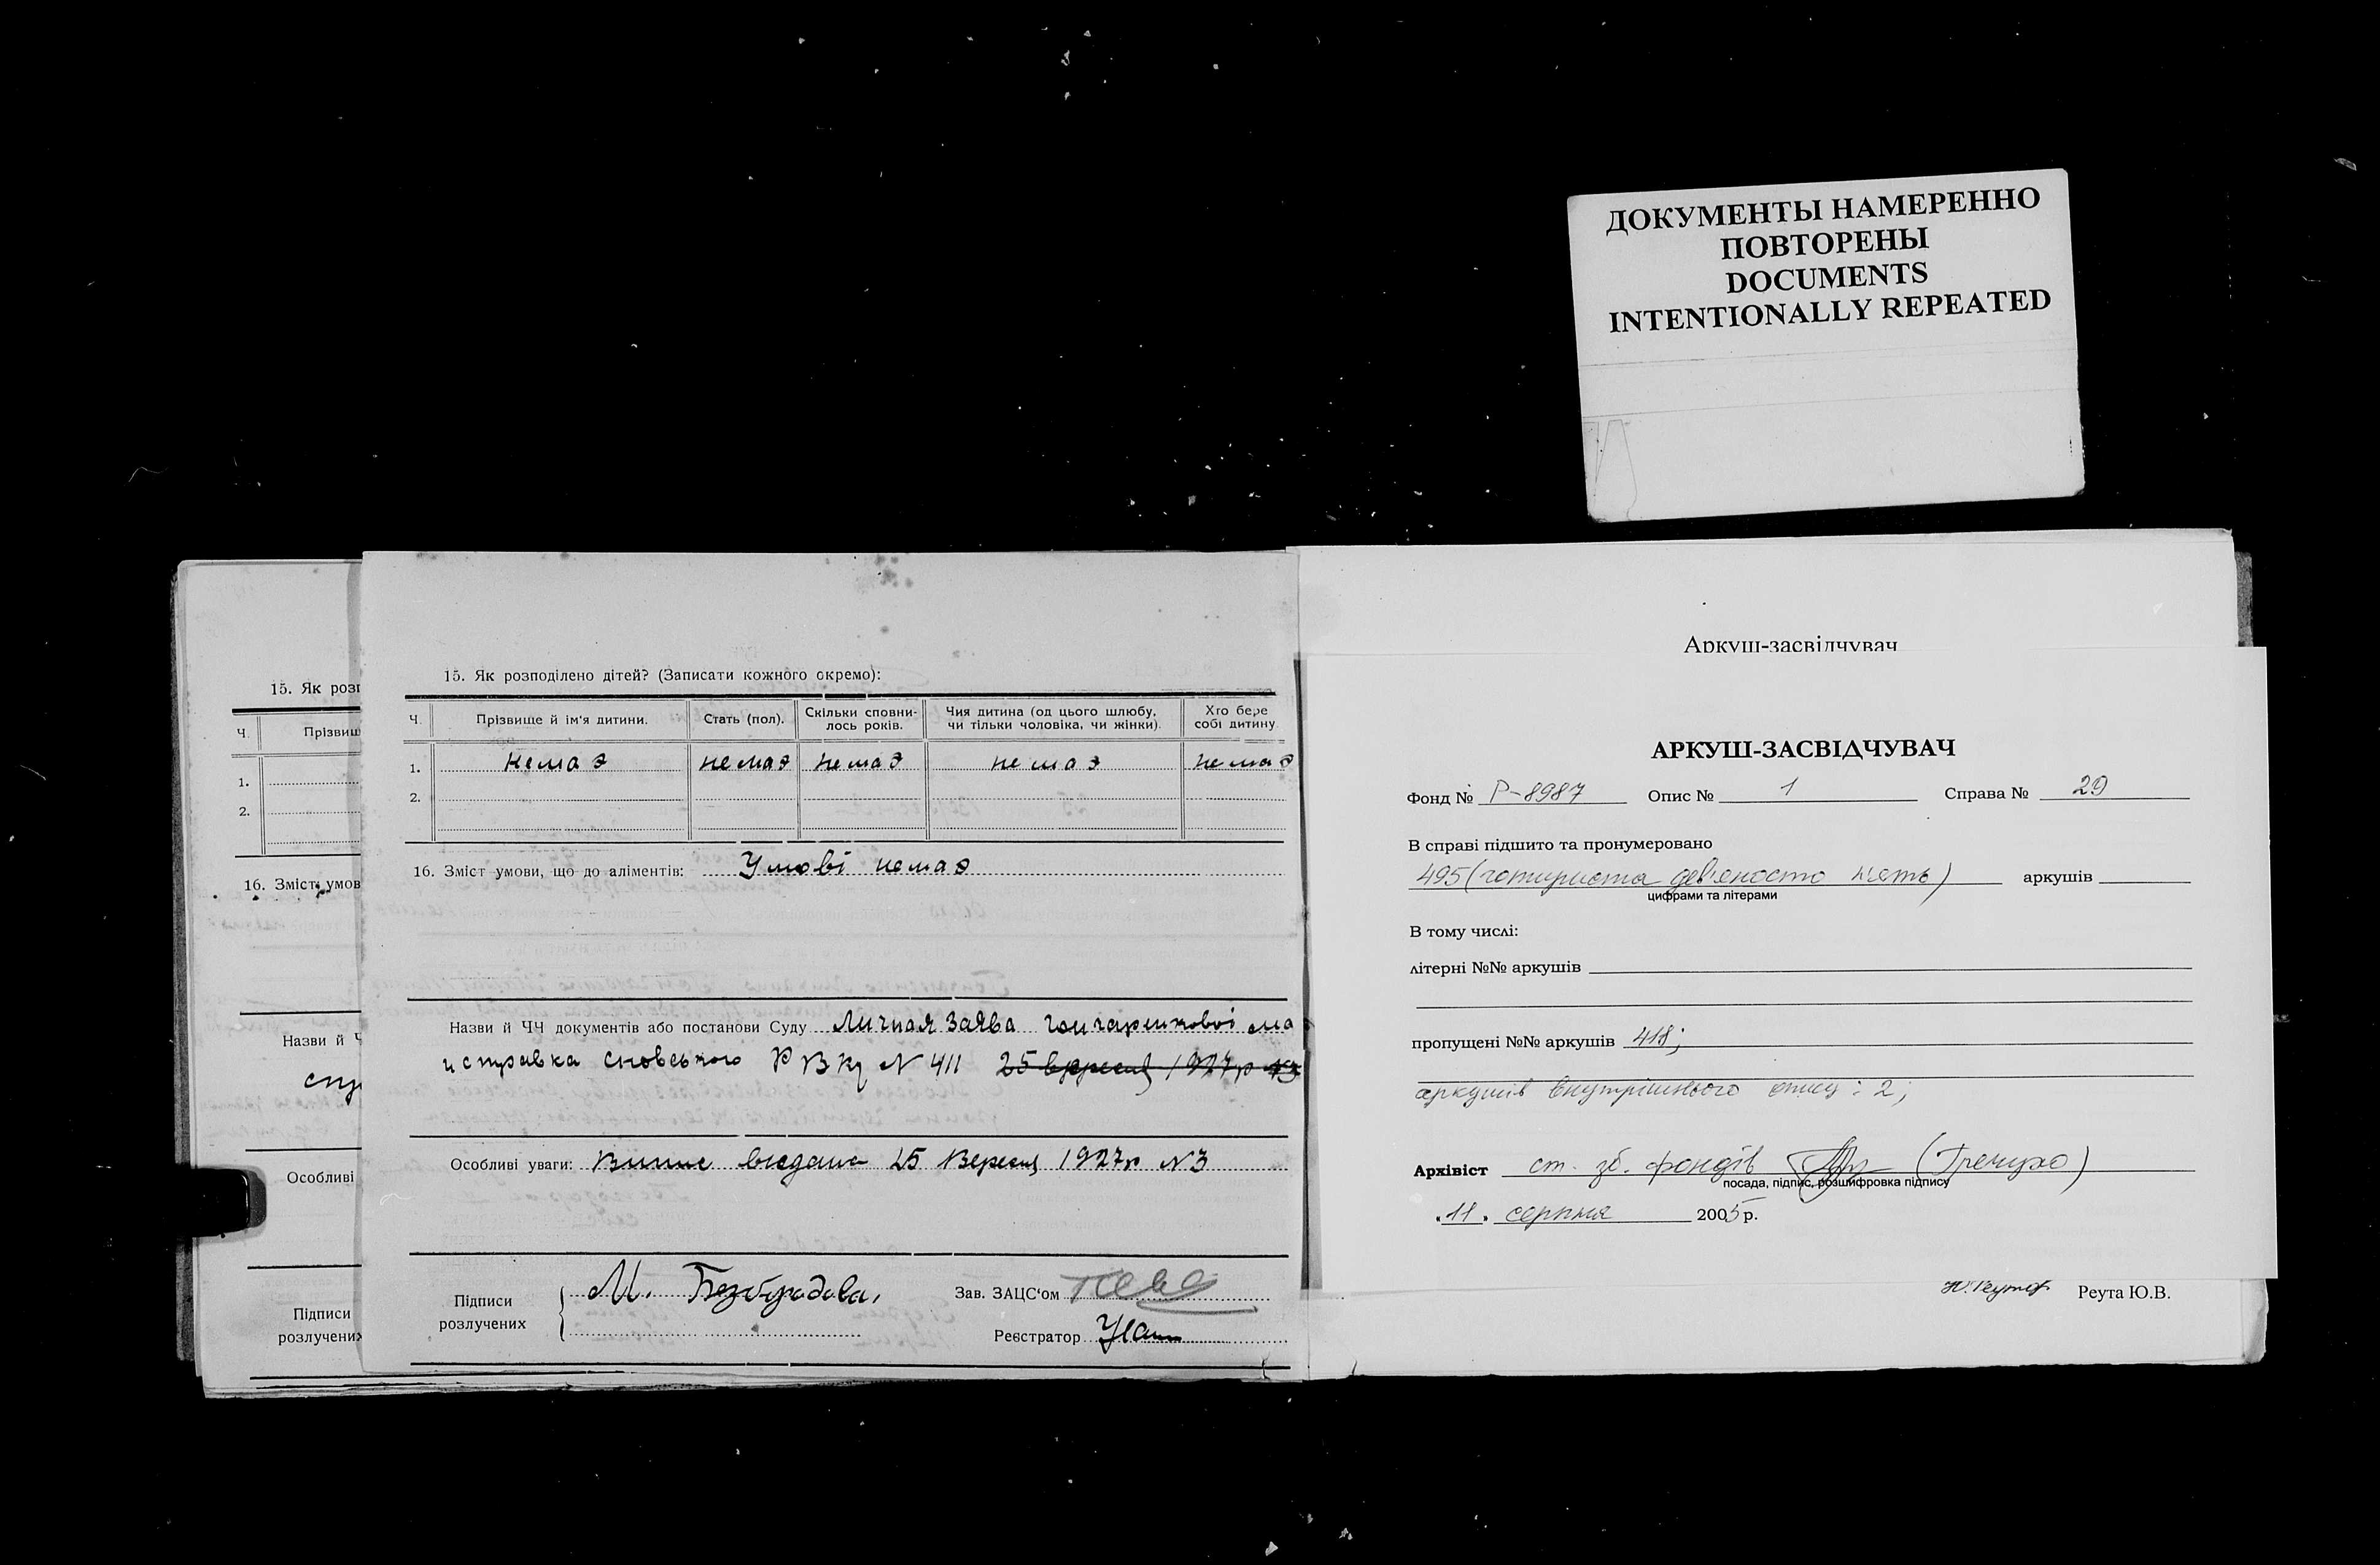 ДОКУМЕНТЫ НАМЕРЕННО
ПОВТОРЕНЫ
DOCUMENTS
INTENTIONALLY REPEATED
15. Як розп
Ч. Прізвищ
1.
2.
16. Зміст умов
Назви й Ч
спр
Особливі
Підписи
розлучених
15. Як розподілено дітей? (Записати кожного окремо):
Ч. Прізвище й ім'я дитини. Стать (пол). Скільки сповни-лось років. Чия дитина (од цього шлюбу, чи тільки чоловіка, чи жінки). Хто бере собі дитину.
1. немає немає немає немає немає
2.
16. Зміст умови, що до аліментів: Умові немає
Назви й ЧЧ документів або постанови Суду Личная заява
и справка Сновського РВКу N 411 25 вересня 1927р
Особливі уваги: Випис видана 25 Вересня 1927р N3
Підписи
розлучених
М. Безбородова,
Зав. ЗАЦС'ом
Реєстратор
Аркуш-засвідчувач
АРКУШ-ЗАСВІДЧУВАЧ
Фонд № Р-8987 Опис № 1 Справа № 29
В справі підшито та пронумеровано
495 (чотириста дев'яносто п'ять) аркушів
цифрами та літерами
В тому числі:
літерні №№ аркушів
пропущені №№ аркушів 418;
аркушів внутрішнього опису: 2;
Архівіст ст. зб. фондів (Гречухо)
посада, підпис, розшифровка підпису
"11" серпня 2005 р.
Ю.Реута Реута Ю.В.